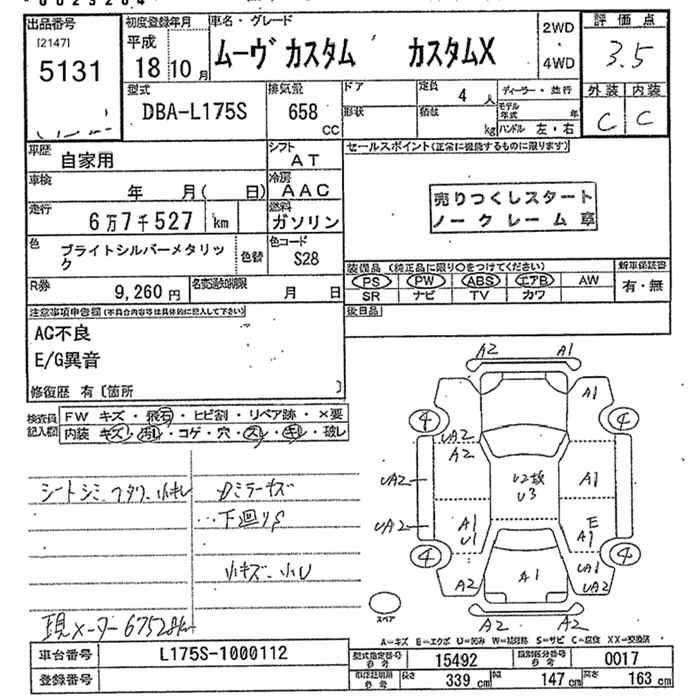 出品番号
[2147]
5131
初度登録年月
平成
18 10 月
車名・グレード
ムーヴ カスタム カスタムX
2WD
4WD
評価点
3.5
外装 内装
C C
型式
DBA-L175S
排気量
658
CC
ドア
形状
定員
4 人
積載
kg
ディーラー・並行
モデル年式 年
ハンドル 左・右
車歴
自家用
シフト
AT
車検
年 月( 日)
冷房
AAC
走行
6万7千527 km
燃料
ガソリン
色
ブライトシルバーメタリック
色替
色コード
S28
R券
9,260 円
名変通知期限
月 日
セールスポイント(正常に機能するものに限ります)
売りつくしスタート
ノークレーム車
装備品 (純正品に限り○をつけてください)
PS PW ABS エアB AW
SR ナビ TV カワ
新車保証書
有・無
後日品
注意事項申告欄(不具合内容等は具体的に記入して下さい)
AC不良
E/G異音
修復歴 有〔箇所 〕
検査員
記入欄
FW キズ・飛石・ヒビ割・リペア跡・×要
内装 キズ・汚レ・コゲ・穴・スレ・キレ・破レ
シートシミ、
Dミラーキズ
下廻りS
小キズ・小U
現メーター67528km
A2 A1
A1
4 4
UA2
A2
UA2
A1
U2
U3
UA2
A1
U1
E
A1
4 4
UA1
UA2
A2
A1
A2 A2
スペア
A=キズ E=エクボ U=凹み W=補修跡 S=サビ C=腐食 XX=交換済
車台番号
L175S-1000112
登録番号
型式指定番号
参考
15492
類別区分番号
参考
0017
参考
長さ
339 cm
幅
147 cm
高さ
163 cm